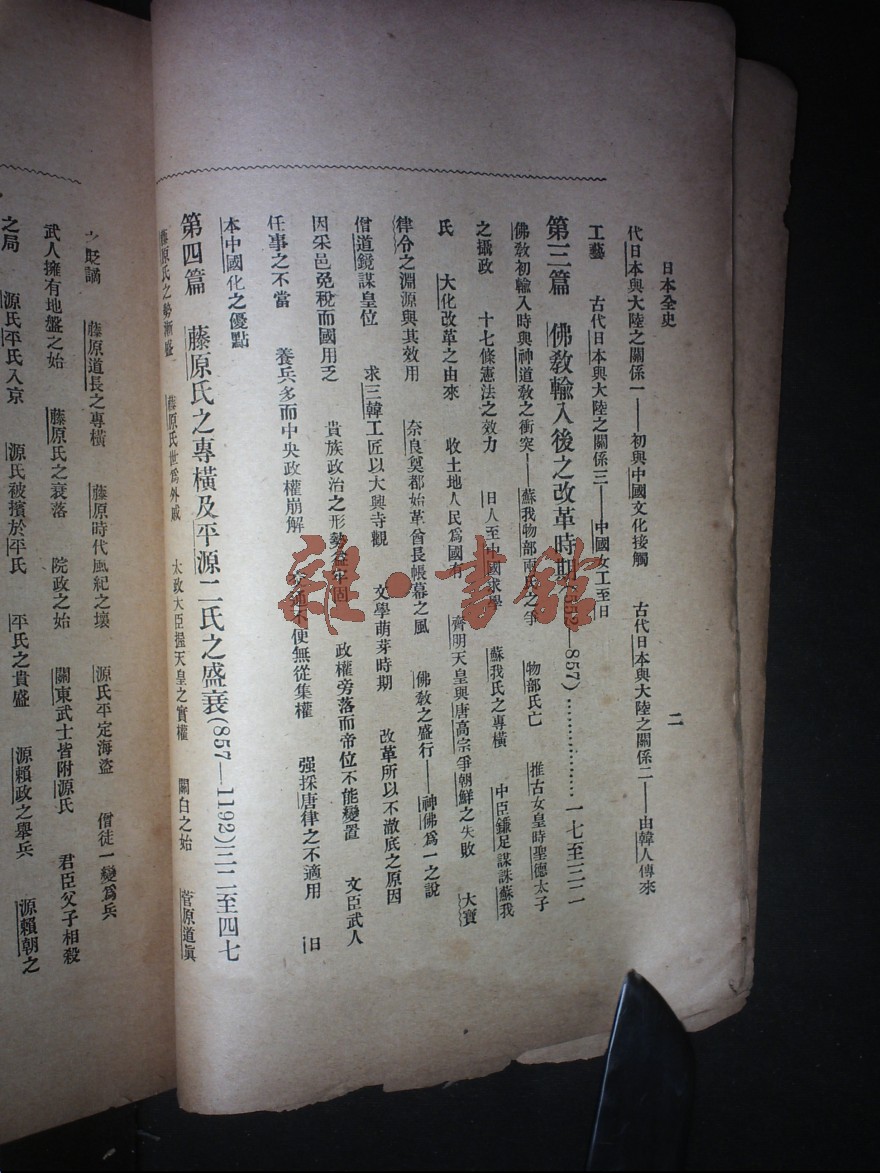 日本全史
二
代日本與大陸之關係一——初與中國文化接觸　古代日本與大陸之關係二——由韓人傳來
工藝　古代日本與大陸之關係三——中國女工至日
第三篇　佛教輸入後之改革時期(552—857)……………一七至三二
佛教初輸入時與神道教之衝突——蘇我物部兩氏之爭　物部氏亡　推古女皇時聖德太子
之攝政　十七條憲法之效力　日人至中國求學　蘇我氏之專橫　中臣鎌足謀誅蘇我
氏　大化改革之由來　收土地人民爲國有　齊明天皇與唐高宗爭朝鮮之失敗　大寶
律令之淵源與其效用　奈良奠都始革酋長帳幕之風　佛教之盛行——神佛爲一之說
僧道鏡謀皇位　求三韓工匠以大興寺觀　文學萌芽時期　改革所以不澈底之原因
因采邑免稅而國用乏　貴族政治之形勢益牢固　政權旁落而帝位不能變置　文臣武人
任事之不當　養兵多而中央政權崩解　交通不便無從集權　强採唐律之不適用　日
本中國化之優點
第四篇　藤原氏之專橫及平源二氏之盛衰(857—1192)三二至四七
藤原氏之勢漸盛　藤原氏世爲外戚　太政大臣握天皇之實權　關白之始　菅原道眞
之貶謫　藤原道長之專橫　藤原時代風紀之壞　源氏平定海盜　僧徒一變爲兵
武人擁有地盤之始　藤原氏之衰落　院政之始　關東武士皆附源氏　君臣父子相殺
之局　源氏平氏入京　源氏被擯於平氏　平氏之貴盛　源賴政之舉兵　源賴朝之
雜·書館